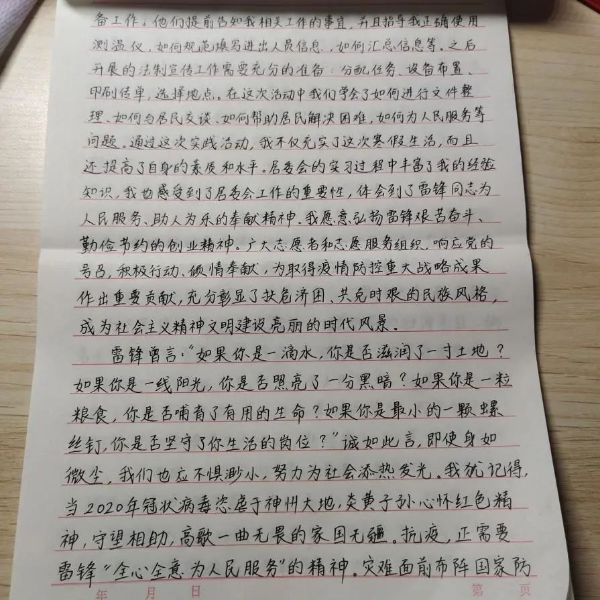 备工作。他们提前告知我相关工作的事宜，并且指导我正确使用
测温仪，如何规范填写进出人员信息，如何汇总信息等。之后
开展的法制宣传工作需要充分的准备：分配任务、设备布置、
印刷传单，选择地点。在这次活动中我们学会了如何进行文件整
理、如何与居民交谈、如何帮助居民解决困难，如何为人民服务等
问题。通过这次实践活动，我不仅充实了这次寒假生活，而且
还提高了自身的素质和水平。居委会的实习过程中丰富了我的经验
知识，我也感受到了居委会工作的重要性，体会到了雷锋同志为
人民服务、助人为乐的奉献精神。我愿意弘扬雷锋艰苦奋斗、
勤俭节约的创业精神。广大志愿者和志愿服务组织，响应党的
号召，积极行动、倾情奉献，为取得疫情防控重大战略成果
作出重要贡献，充分彰显了扶危济困、共克时艰的民族风格，
成为社会主义精神文明建设亮丽的时代风景。
雷锋曾言：“如果你是一滴水，你是否滋润了一寸土地？
如果你是一线阳光，你是否照亮了一分黑暗？如果你是一粒
粮食，你是否哺育了有用的生命？如果你是最小的一颗螺
丝钉，你是否坚守了你生活的岗位？”诚如此言，即使身如
微尘，我们也应不惧渺小，努力为社会添热发光。我犹记得，
当2020年冠状病毒恣虐于神州大地，炎黄子孙心怀红色精
神，守望相助，高歌一曲无畏的家国无疆。抗疫，正需要
雷锋“全心全意为人民服务”的精神。灾难面前布阵国家防
年 月 日 第 页